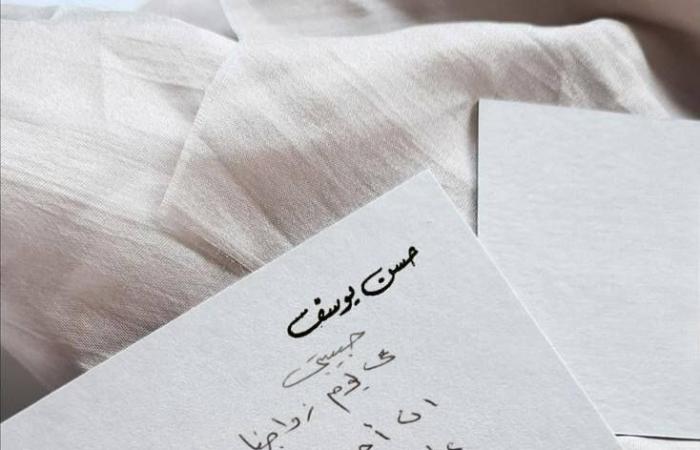 حسن يوسف
حبيبتي
في يوم زواجنا
ان أ